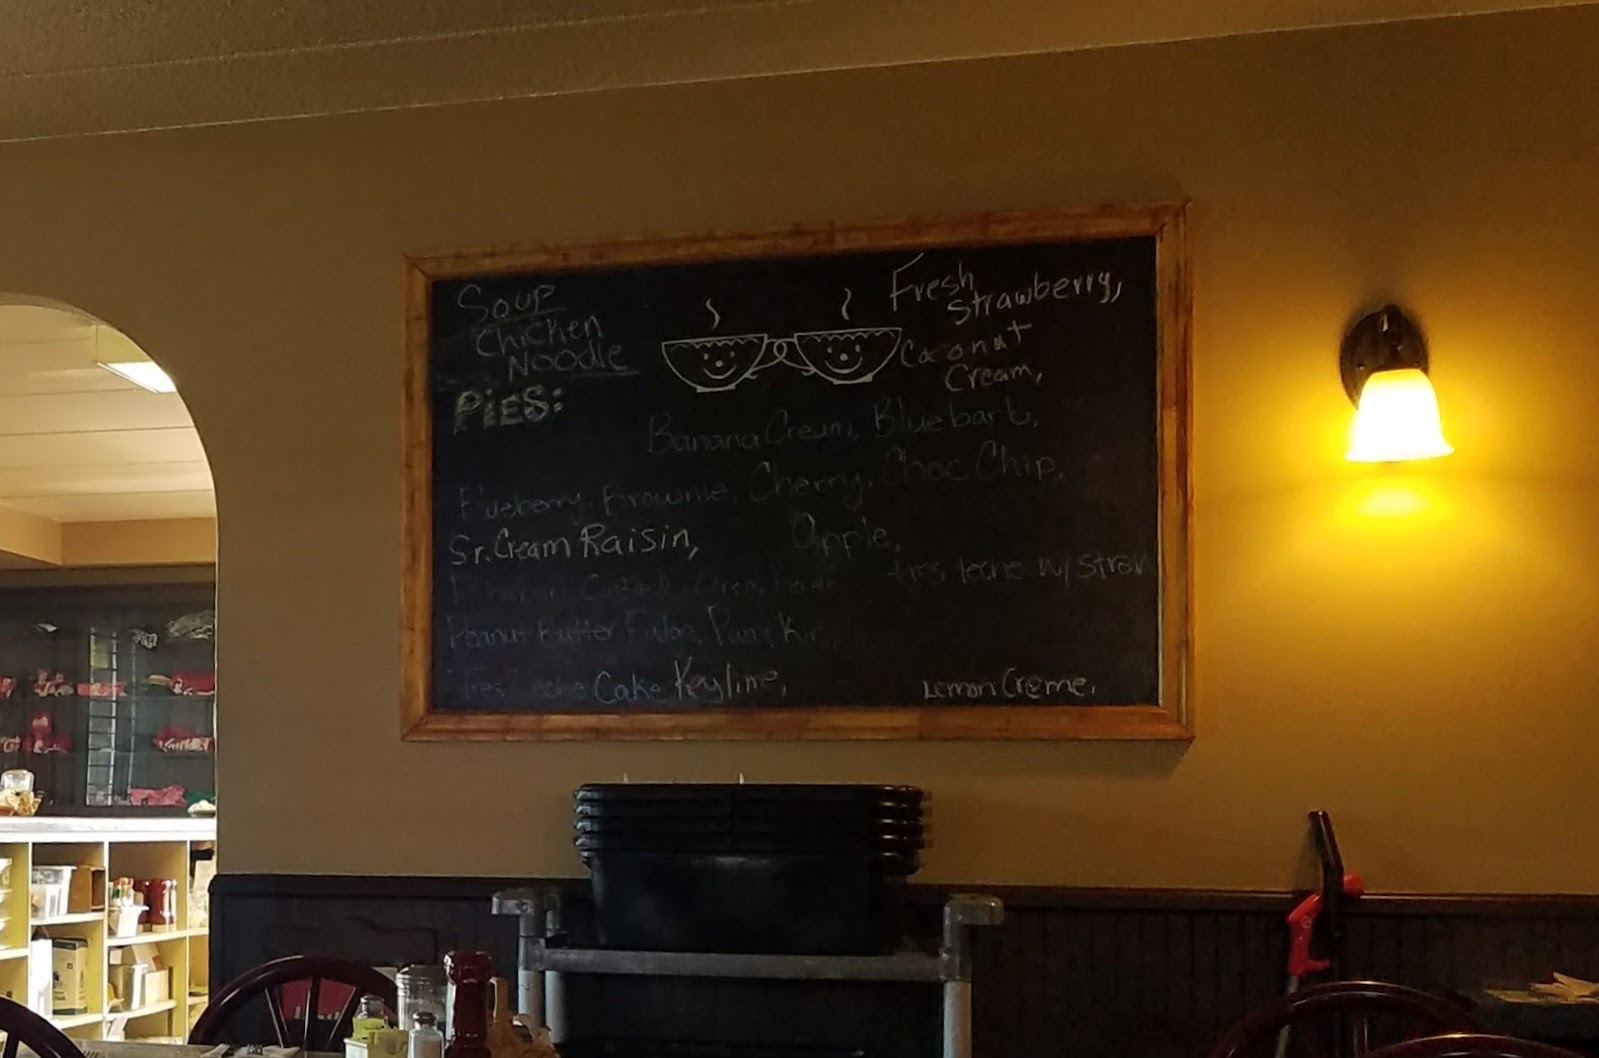 Soup
Chicken
Noodle
Fresh
Strawberry,
Coconut
Cream,
PiES:
Banana Cream, Bluebarb,
Blueberry, Brownie, Cherry, Choc Chip,
Sr. Cream Raisin, Apple,
tres leche w/ straw
Custard,
Peanut butter Fudge, Pumpkin,
Tres Leche Cake Keylime, Lemon Creme,